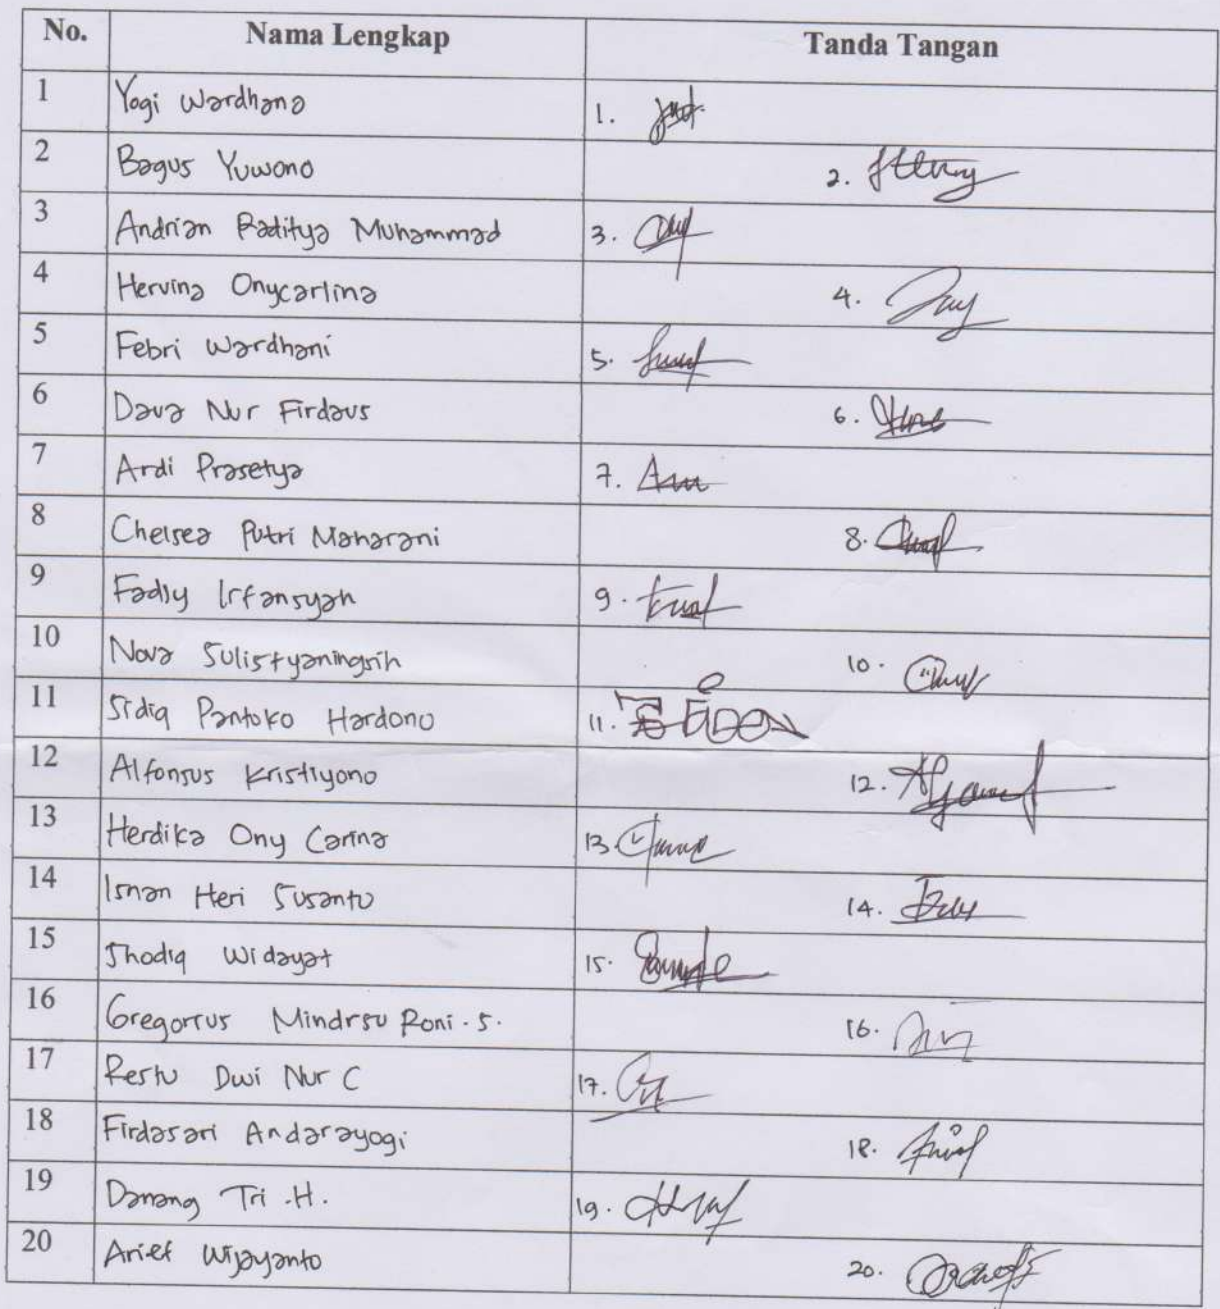 No. Nama Lengkap Tanda Tangan
1 Yogi Wardhana 1.
2 Bagus Yuwono 2.
3 Andrian Raditya Muhammad 3.
4 Hervina Onycarlina 4.
5 Febri Wardhani 5.
6 Dava Nur Firdaus 6.
7 Ardi Prasetya 7.
8 Chelsea Putri Maharani 8.
9 Fadly Irfansyah 9.
10 Nova Sulistyaningsih 10.
11 Sidiq Pantoko Hardono 11.
12 Alfonsus Kristiyono 12.
13 Herdika Ony Carina 13.
14 Isnan Heri Susanto 14.
15 Shodiq Widayat 15.
16 Gregorius Roni.S. 16.
17 Restu Dwi Nur C 17.
18 Firdasari Andarayogi 18.
19 Danang Tri .H. 19.
20 Arief Wijayanto 20.